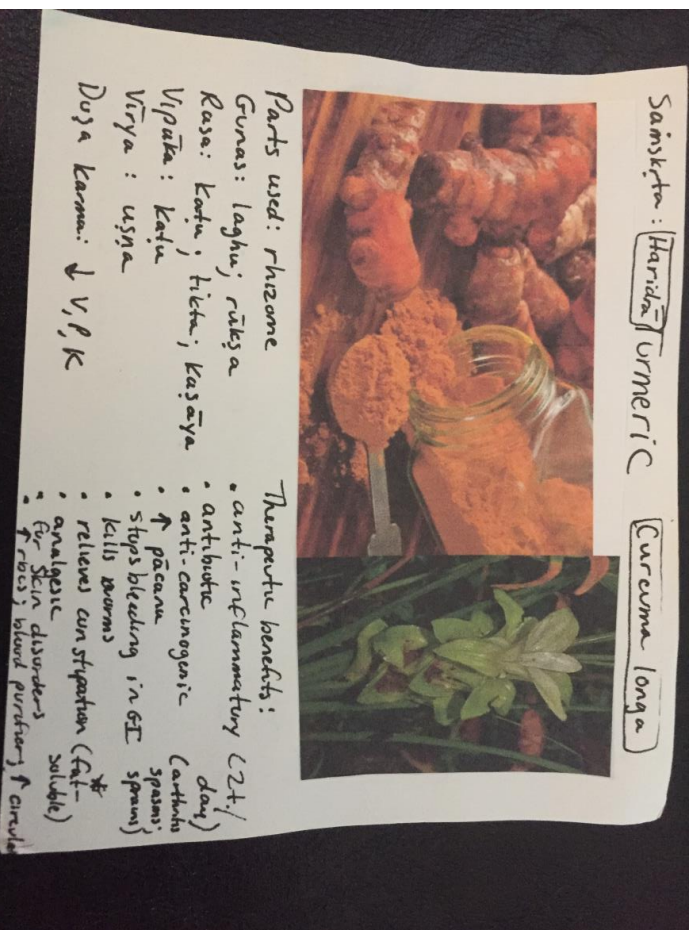 Saṁskṛta: Haridā Turmeric Curcuma longa
Parts used: rhizome
Gunas: laghu; rūkṣa
Rasa: kaṭu; tikta; kaṣāya
Vipāka: kaṭu
Vīrya: uṣṇa
Duṣa karma: ↓ V, P, K
Therapeutic benefits:
• anti-inflammatory (2t./day)
• antibiotic
• anti-carcinogenic (arthritis
• ↑ pācana spasms;
• stops bleeding in GI sprains)
• kills worms
• relieves constipation (fat-soluble)
• analgesic
• for skin disorders
• ↑ rbcs; blood purifier; ↑ circula